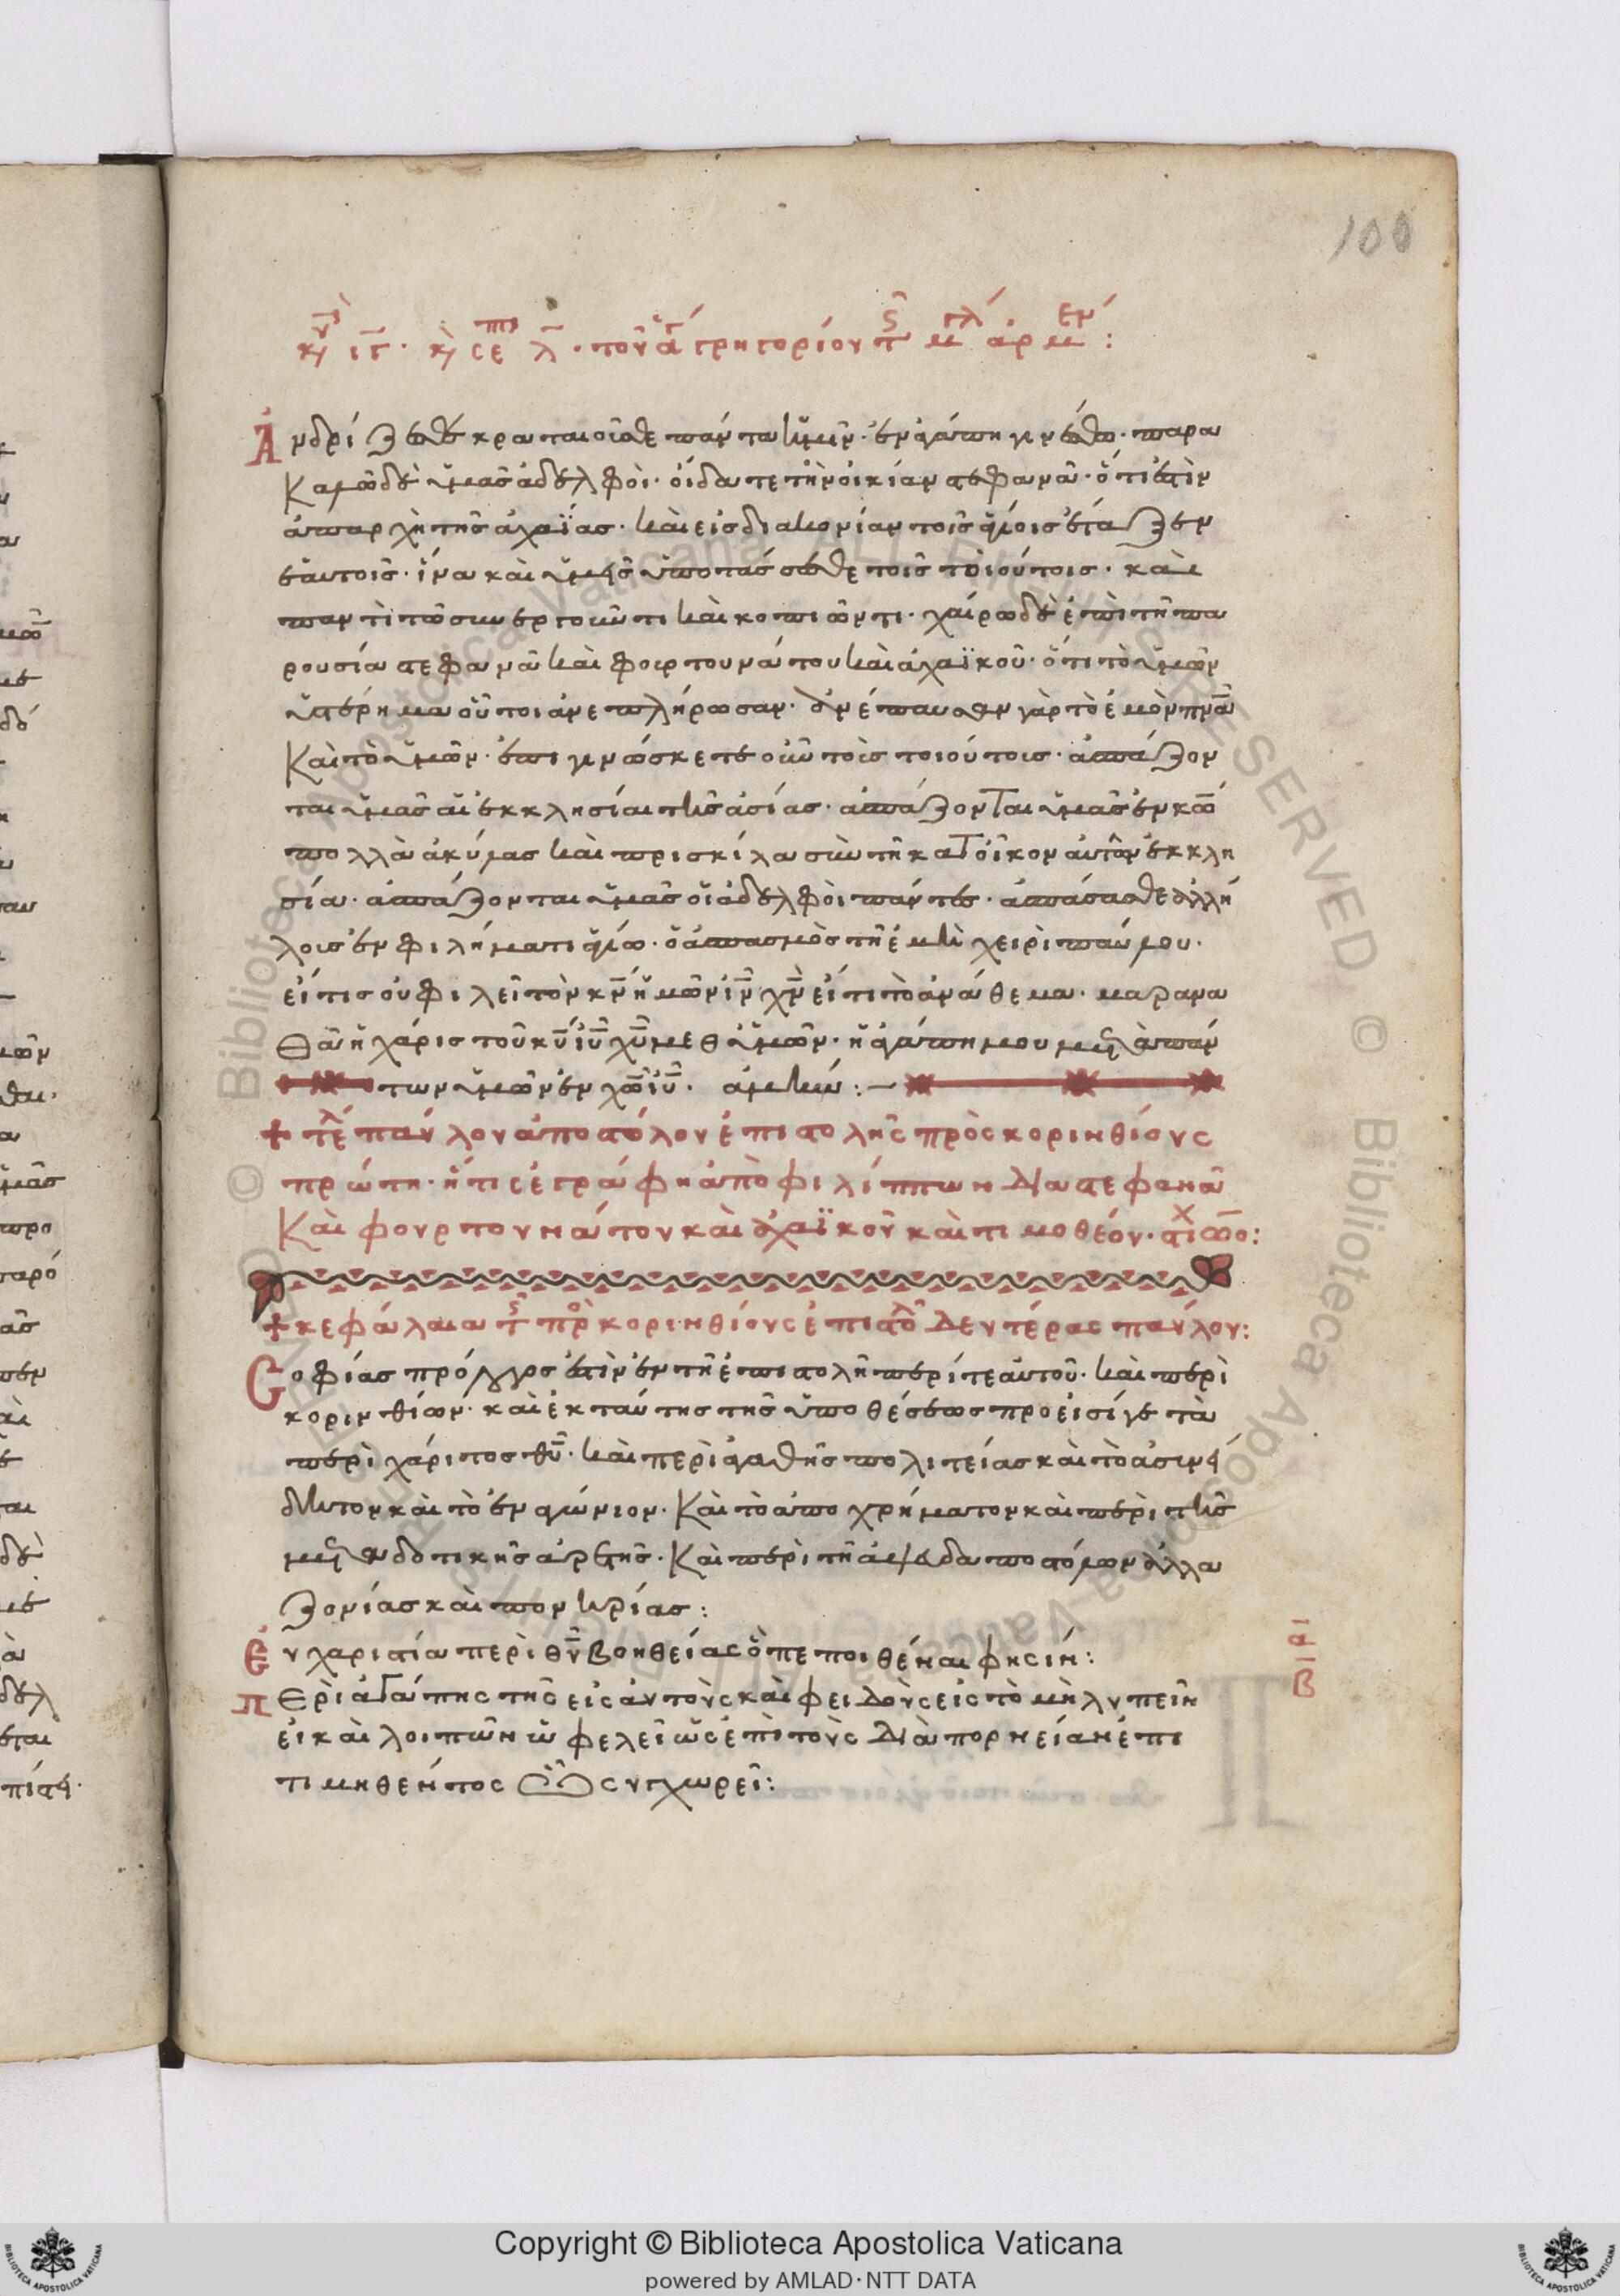 100
κυ ιγ· κ σεπ λ· τοῦ ἁγ γρηγορίου τ μ γλ ἀρμεν:
Ἀνδρίζεσθε κραταιοῦσθε πάντα ὑμῶν· ἐν ἀγάπη γινέσθω· παρα
Καλῶ δὲ ὑμᾶς ἀδελφοὶ· οἴδατε τὴν οἰκίαν στεφανᾶ· ὅτι ἐστὶν
ἀπαρχὴ τῆς ἀχαΐας· καὶ εἰς διακονίαν τοῖς ἁγίοις ἔταξεν
ἑαυτοῖς· ἵνα καὶ ὑμεῖς ὑποτάσσησθε τοῖς τοιούτοις· καὶ
παντὶ τῶ συνεργοῦντι καὶ κοπιῶντι· χαίρω δὲ ἐπὶ τῆ πα
ρουσία στεφανᾶ καὶ φουρτουνάτου καὶ ἀχαϊκοῦ· ὅτι τὸ ὑμῶν
ὑστέρημα οὗτοι ἀνεπλήρωσαν· ἀνέπαυσαν γὰρ τὸ ἐμὸν πνᾶ
Καὶ τὸ ὑμῶν· ἐπιγινώσκετε οὖν τοὶς τοιούτοις· ἀσπάζον
ται ὑμᾶς αἱ ἐκκλησίαι τῆς ἀσίας· ἀσπάζονται ὑμᾶς ἐν κω
πολλὰ ἀκύλας καὶ πρισκίλα σὺν τῆ κατ οἶκον αὐτῶν ἐκκλη
σία· ἀσπάζονται ὑμᾶς οἱ ἀδελφοὶ πάντες· ἀσπάσασθε ἀλλή
λοις ἐν φιλήματι ἁγίω· ὁ ἀσπασμὸς τῆ ἐμῆ χειρὶ παύλου·
εἴ τις οὐ φιλεῖ τὸν κν ἡμῶν ιν χν εἴτι τὸ ἀνάθεμα· μαρανα
Θᾶ ἡ χάρις τοῦ κυ ιυ χυ μεθ ὑμῶν· ἡ ἀγάπη μου μετὰ πάν
των ὑμῶν ἐν χω ιυ· ἀμήν:—
+ τελ παύλου ἀποστόλου ἐπιστολῆς πρὸς κορινθίους
πρώτη· ἥτις ἐγράφη ἀπὸ φιλίππων διὰ στεφανᾶ
Καὶ φουρτουνάτου καὶ ἀχαϊκοῦ καὶ τιμοθέου· στίχ ωο:
+ κεφάλαια τ πρ κορινθίους ἐπιστολ δευτέρας παύλου:
Σοφίας πρόλογος ἐστὶν ἐν τῆ ἐπιστολῆ περί τε αὐτοῦ· καὶ περὶ
κορινθίων· καὶ ἐκ ταύτης τῆς ὑποθέσεως προεισίγε τὰ
περὶ χάριτος θυ· καὶ περὶ ἀγαθῆς πολιτείας καὶ τὸ ἀσινεί
δητον καὶ τὸ ἐναγώνιον· Καὶ τὸ ἀπο χρήματον καὶ περὶ τῆς
μεταδοτικῆς ἀρετῆς· Καὶ περὶ τῆ ἀψεδαποστόλων ἀλλα
ζονίας καὶ πονηρίας:
Εὐχαριστία περὶ θυ βοηθείας ὁ πεποιθέναι φησιν: α
Περὶ ἀγάπης τῆς εἰς αὐτοὺς καὶ φειδοὺς εἰς τὸ μὴ λυπεῖν β
εἰ καὶ λοιπῶν ὠφελεῖ ὥς ἐπὶ τοὺς διὰ πορνείαν ἐπι
τιμηθέντος ὧ συγχωρεῖ:
Copyright © Biblioteca Apostolica Vaticana
powered by AMLAD·NTT DATA